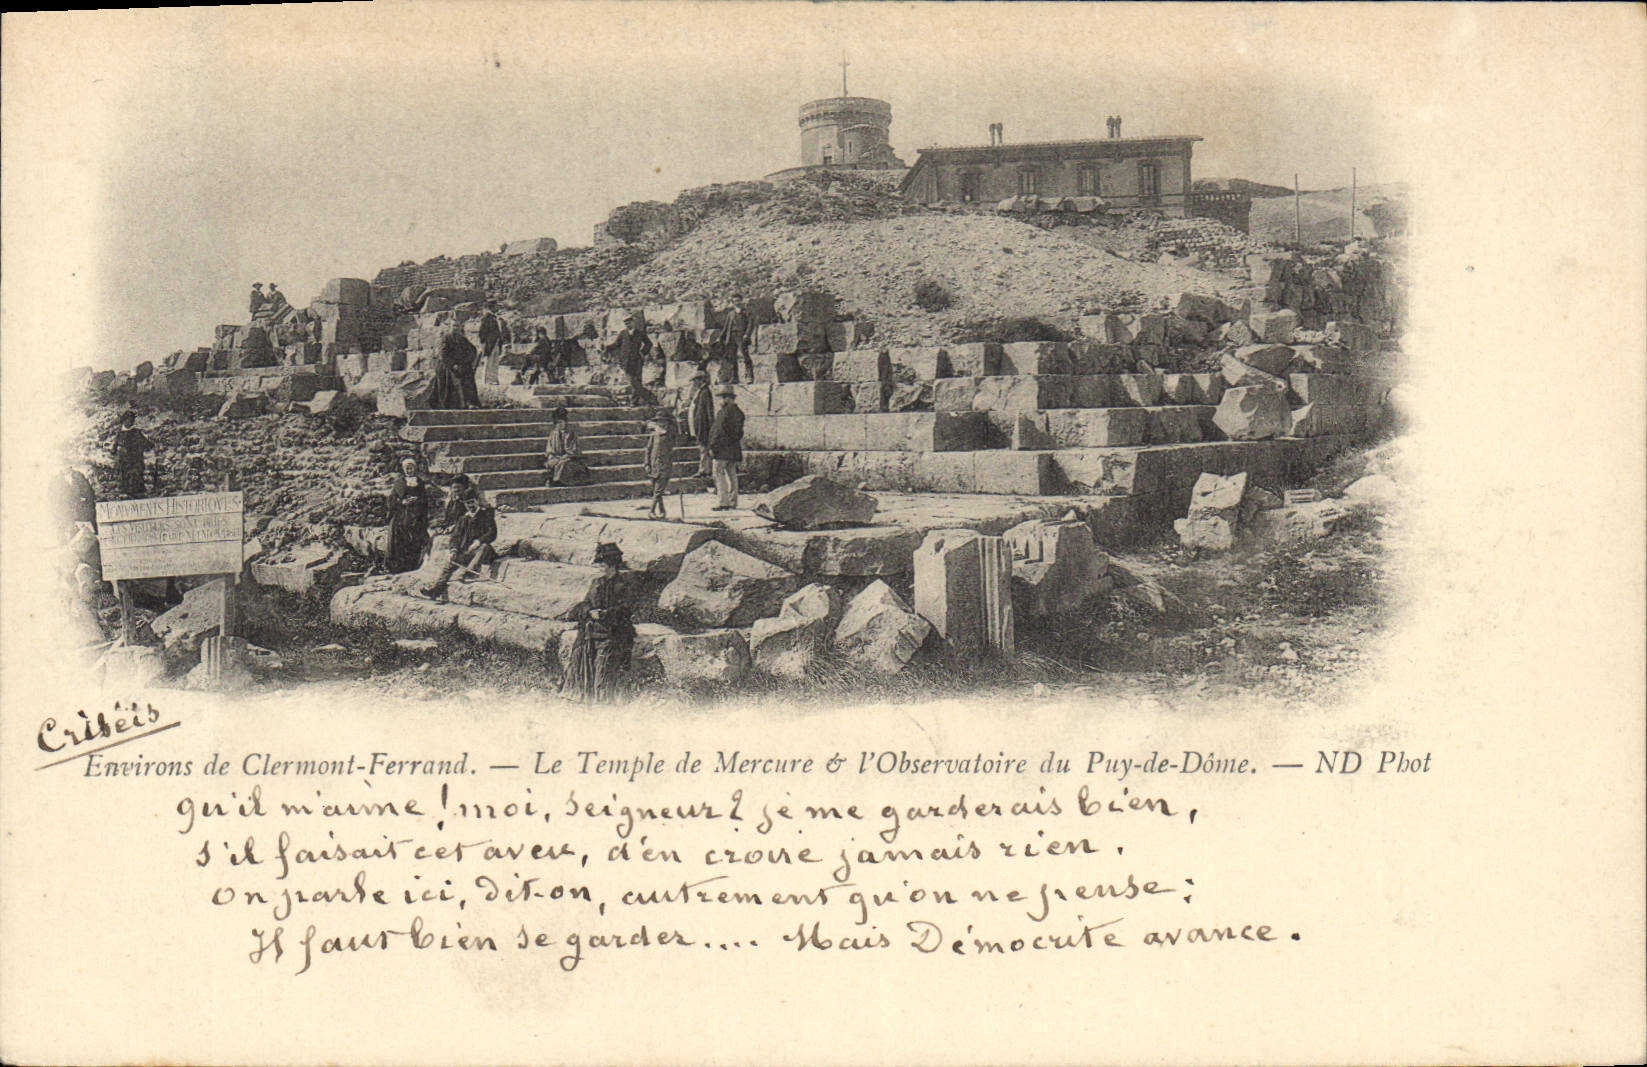 MONUMENTS HISTORIQUES
LES VISITEURS SONT PRIÉS
Criséis
Environs de Clermont-Ferrand. — Le Temple de Mercure & l'Observatoire du Puy-de-Dôme. — ND Phot
qu'il m'aime ! moi, Seigneur ? je me garderais bien,
s'il faisait cet aveu, d'en croire jamais rien.
On parle ici, dit-on, autrement qu'on ne pense ;
Il faut bien se garder.... Mais Démocrite avance.